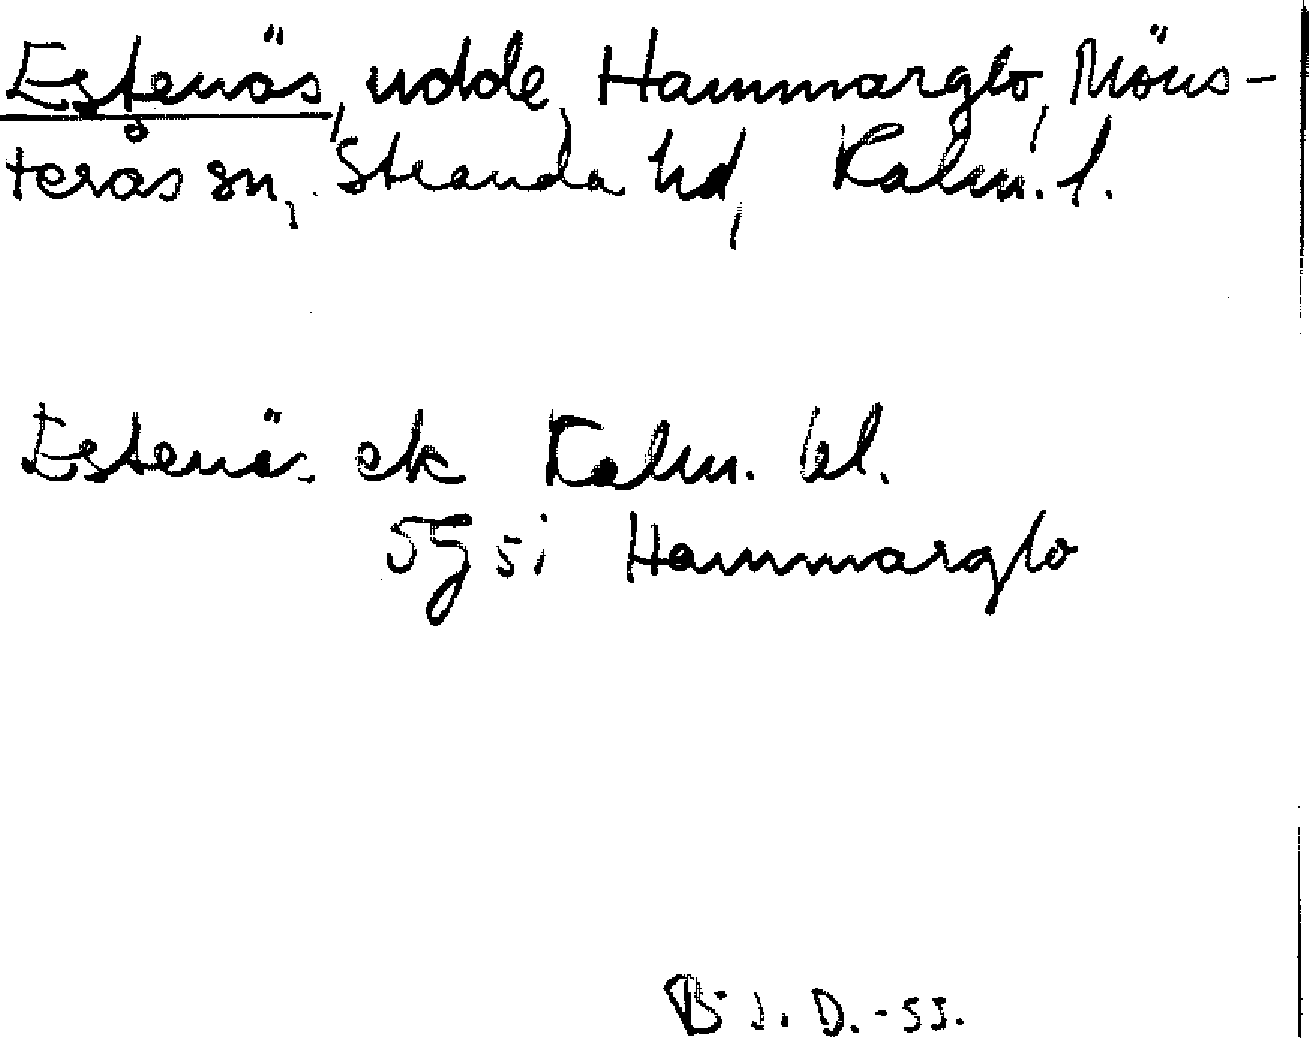 Estenäs, udde, Hammarglo, Möns-
terås sn, Stranda hd, Kalm. l.
Estenäs ek Kalm. bl.
5g 5i Hammarglo
B. J. D. -55.